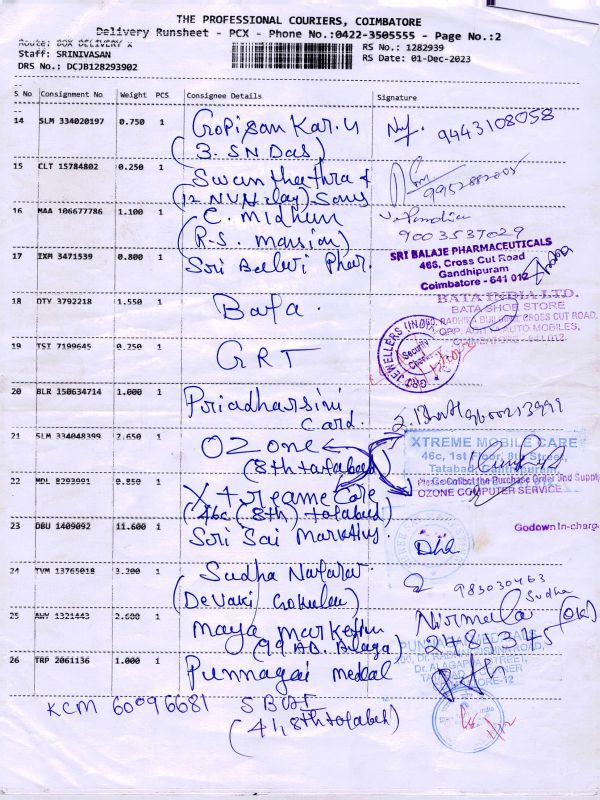 THE PROFESSIONAL COURIERS, COIMBATORE
Delivery Runsheet - PCX - Phone No.:0422-3505555 - Page No.:2
Route: BOX DELIVERY X
Staff: SRINIVASAN
DRS No.: DCJB128293902
RS No.: 1282939
RS Date: 01-Dec-2023
S No Consignment No Weight PCS Consignee Details Signature
14 SLM 334020197 0.750 1 Gopisankar.U 9443108058
(3. SN Das)
15 CLT 15784802 0.250 1 Swanthathra &
(12 NVN clay) Sons
16 MAA 106677786 1.100 1 C. Midhun 9003537029
(R.S. mansion)
17 IXM 3471539 0.800 1 Sri Balaji Phar.
SRI BALAJE PHARMACEUTICALS
466, Cross Cut Road
Gandhipuram
Coimbatore - 641 012
18 DTY 3792218 1.550 1 Bata.
BATA INDIA LTD.
BATA SHOE STORE
CROSS CUT ROAD,
OPP. ADITYA AUTO MOBILES,
COIMBATORE - 641 012.
19 TSI 7199645 0.250 1 GRT
GRT JEWELLERS (INDIA)
Security
20 BLR 150634714 1.000 1 Priadharsini
Card.
21 SLM 334048399 2.650 1 OZone
(8th tatabad)
XTREME MOBILE CARE
46c, 1st Floor, 8th Street,
Tatabad
22 MDL 8293991 0.850 1 Xtreame Care
(46c (8th) tatabad)
Please Collect the Purchase Order And Supply
OZONE COMPUTER SERVICE
23 DBU 1409092 11.600 1 Sri Sai Marketing.
Godown In-charg
24 TVM 13765018 3.200 1 Sudha Nataraj
(Devaki Gokulam)
983030463
Sudha
25 AWY 1321443 2.600 1 Maya Marketin
(99 AD. Alaga)
Nirmala
2485345
26 TRP 2061136 1.000 1 Punnagai medcal
KCM 60096681 SBI
(41, 8th tatabad)